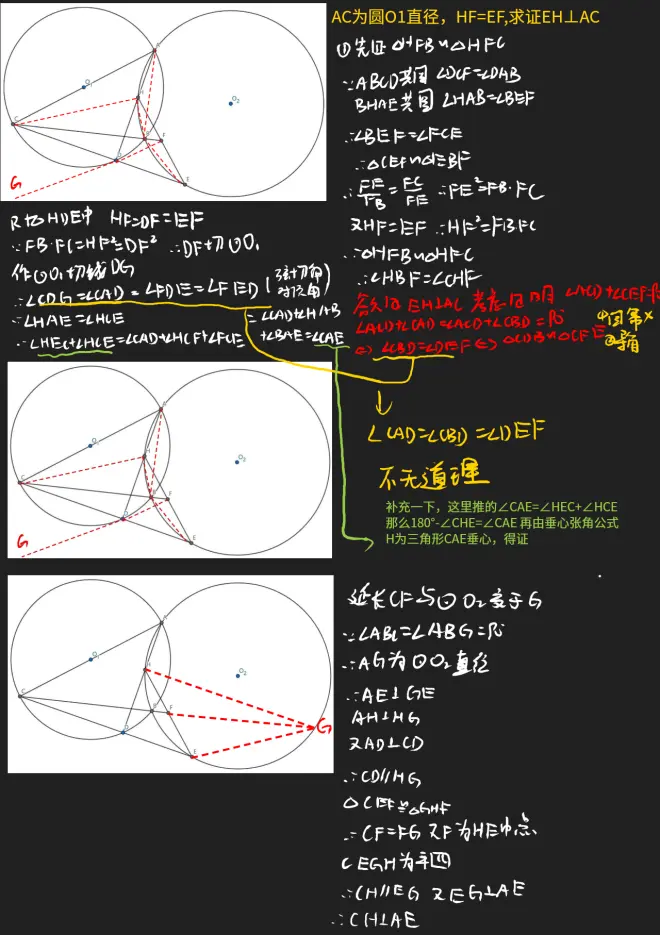 AC为圆O1直径，HF=EF,求证EH⊥AC
①先证△HFB∽△HFC
∵ABCD共圆 ∠DCF=∠DAB
BHAE共圆 ∠HAB=∠BEF
∴∠BEF=∠FCE
∴△CEF∽△EBF
∴FE/FB=FC/FE ∴FE²=FB·FC
又HF=EF ∴HF²=FB·FC
∴△HFB∽△HFC
∴∠HBF=∠CHF
Rt△HDE中 HF=DF=EF
∵FB·FC=HF²=DF² ∴DF切⊙O₁
作⊙O₁切线DG
∴∠CDG=∠CAD=∠FDE=∠FED(弦切角 对顶角)
∵∠HAE=∠HCE
∴∠HEC+∠HCE=∠CAD+∠HCF+∠FCE
=∠CAD+∠HAB
+∠BAE=∠CAE
欲证EH⊥AC 考虑证明 ∠ACD+∠CEF=90
∠ACD+∠CAD=∠ACD+∠CBD=90
⇔∠CBD=∠DEF⇔△CDB∽△CFE
①同幂×
②导角
∠CAD=∠CBD=∠DEF
不无道理
补充一下，这里推的∠CAE=∠HEC+∠HCE
那么180°-∠CHE=∠CAE 再由垂心张角公式
H为三角形CAE垂心，得证
延长CF与⊙O₂交于G
∵∠ABC=∠ABG=90
∴AG为⊙O₂直径
∴AE⊥GE
AH⊥HG
又AD⊥CD
∴CD∥HG
△CEF≌△GHF
∴CF=FG 又F为HE中点
CEGH为平四
∴CH∥EG 又EG⊥AE
∴CH⊥AE